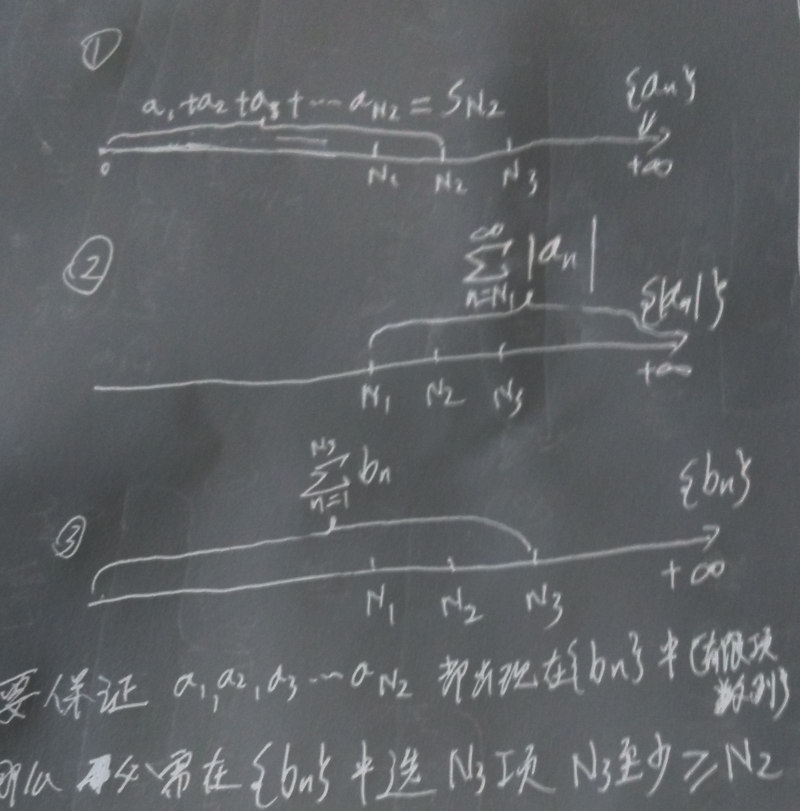 ①
a₁+a₂+a₃+…a_{N₂}=S_{N₂} {aₙ}
0 N₁ N₂ N₃ +∞
②
∑_{n=N₁}^{∞}|aₙ|
{|aₙ|}
N₁ N₂ N₃ +∞
∑_{n=1}^{N₃} bₙ {bₙ}
③
N₁ N₂ N₃ +∞
要保证 a₁,a₂,a₃…a_{N₂} 都出现在{bₙ}中(有限项数列)
那么 必需在{bₙ}中选 N₃项 N₃至少≥N₂